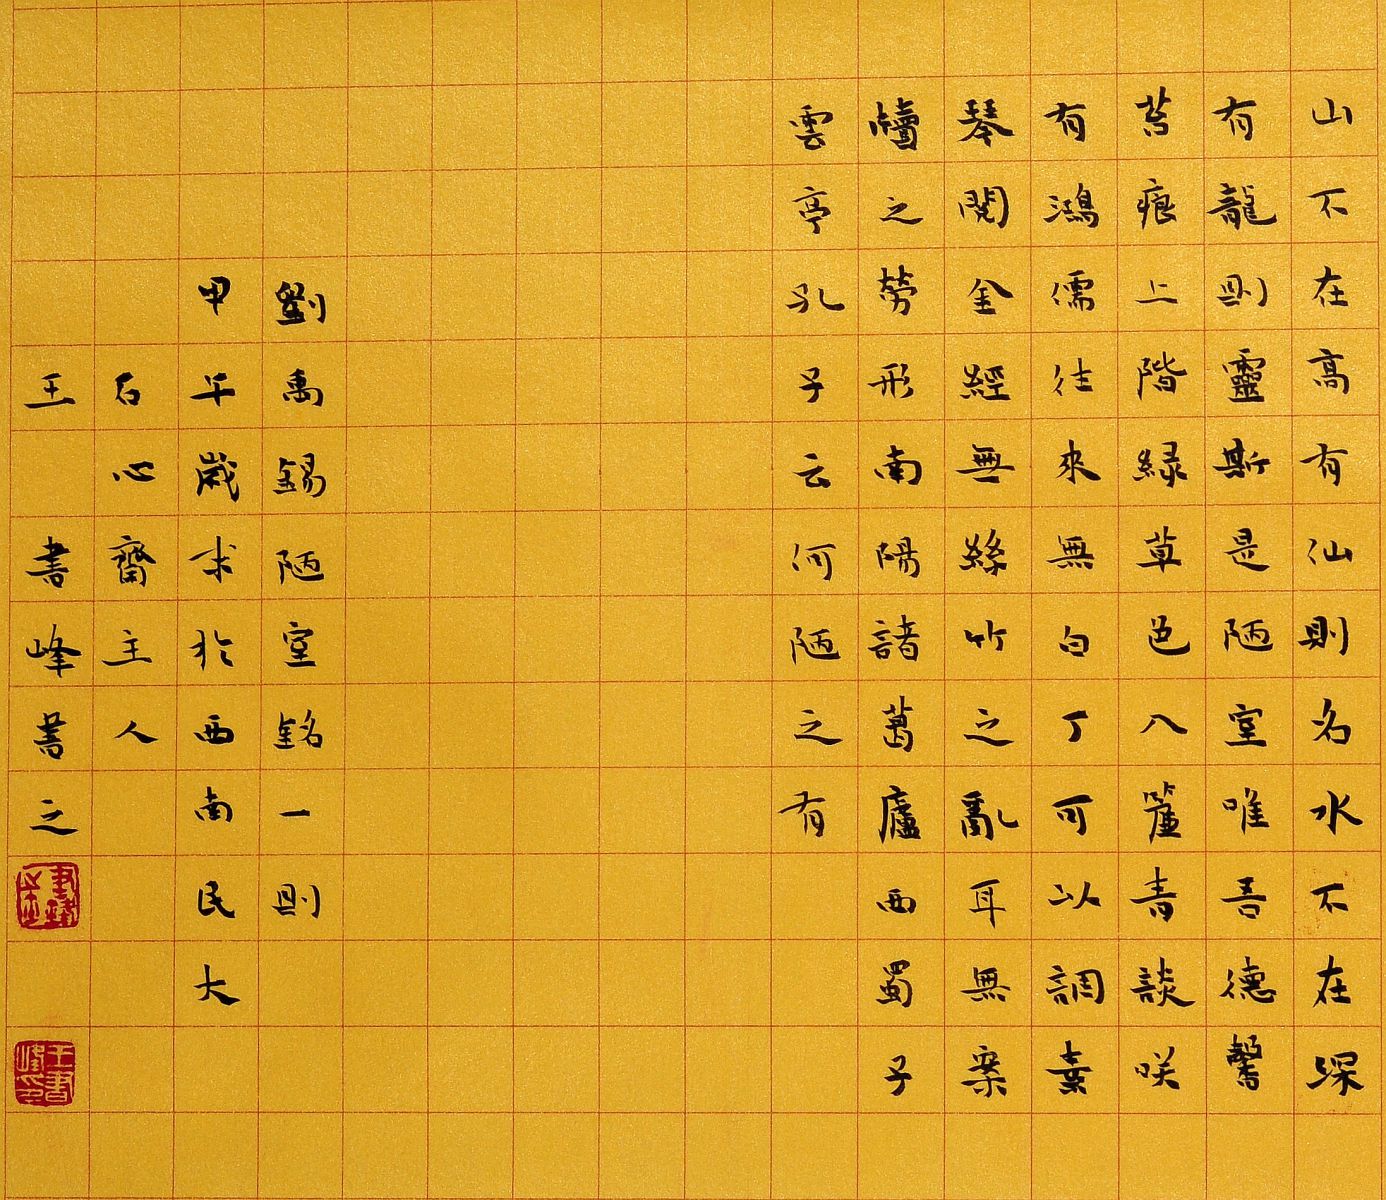 山不在高有仙則名水不在深
有龍則靈斯是陋室唯吾德馨
苔痕上階緑草色入簾青談咲
有鴻儒往來無白丁可以調素
琴閱金經無絲竹之亂耳無案
牘之勞形南陽諸葛廬西蜀子
雲亭孔子云何陋之有
劉禹錫陋室銘一則
甲午歲末於西南民大
石心齋主人
王書峰書之
王書峰印